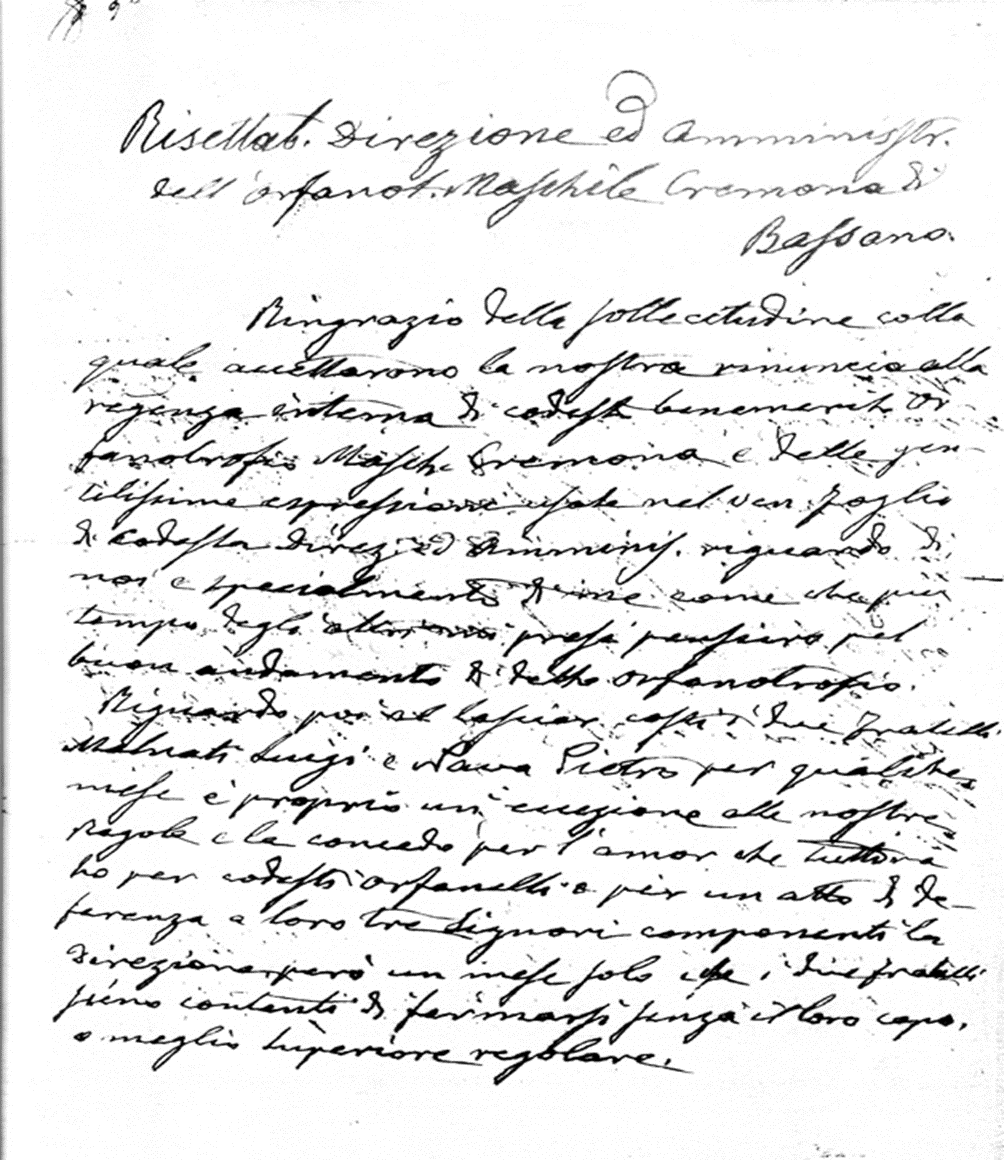 Rispettab. Direzione ed Amministr.
dell'orfanot. Maschile Cremona di
Bassano.
Ringrazio della sollecitudine colla
quale accettarono la nostra rinuncia alla
regenza interna di codesto benemerito Or-
fanotrofio Masch. Cremona e delle gen-
tilissime espressioni usate nel ven. foglio
di codesta Direz. ed Amminis. riguardo di
noi e specialmente di me come che più
tempo degli altri presi pensiero pel
buon andamento di detto orfanotrofio.
Riguardo poi al lasciar costì i due fratelli
Malnati Luigi e Nava Pietro per qualche
mese è proprio un'eccezione alle nostre
Regole e la concedo per l'amor che tuttora
ho per codesti orfanelli e per un atto di de-
ferenza a loro tre Signori componenti la
Direzione però un mese solo e che i due fratelli
sieno contenti di fermarsi senza il loro capo,
o meglio Superiore regolare.